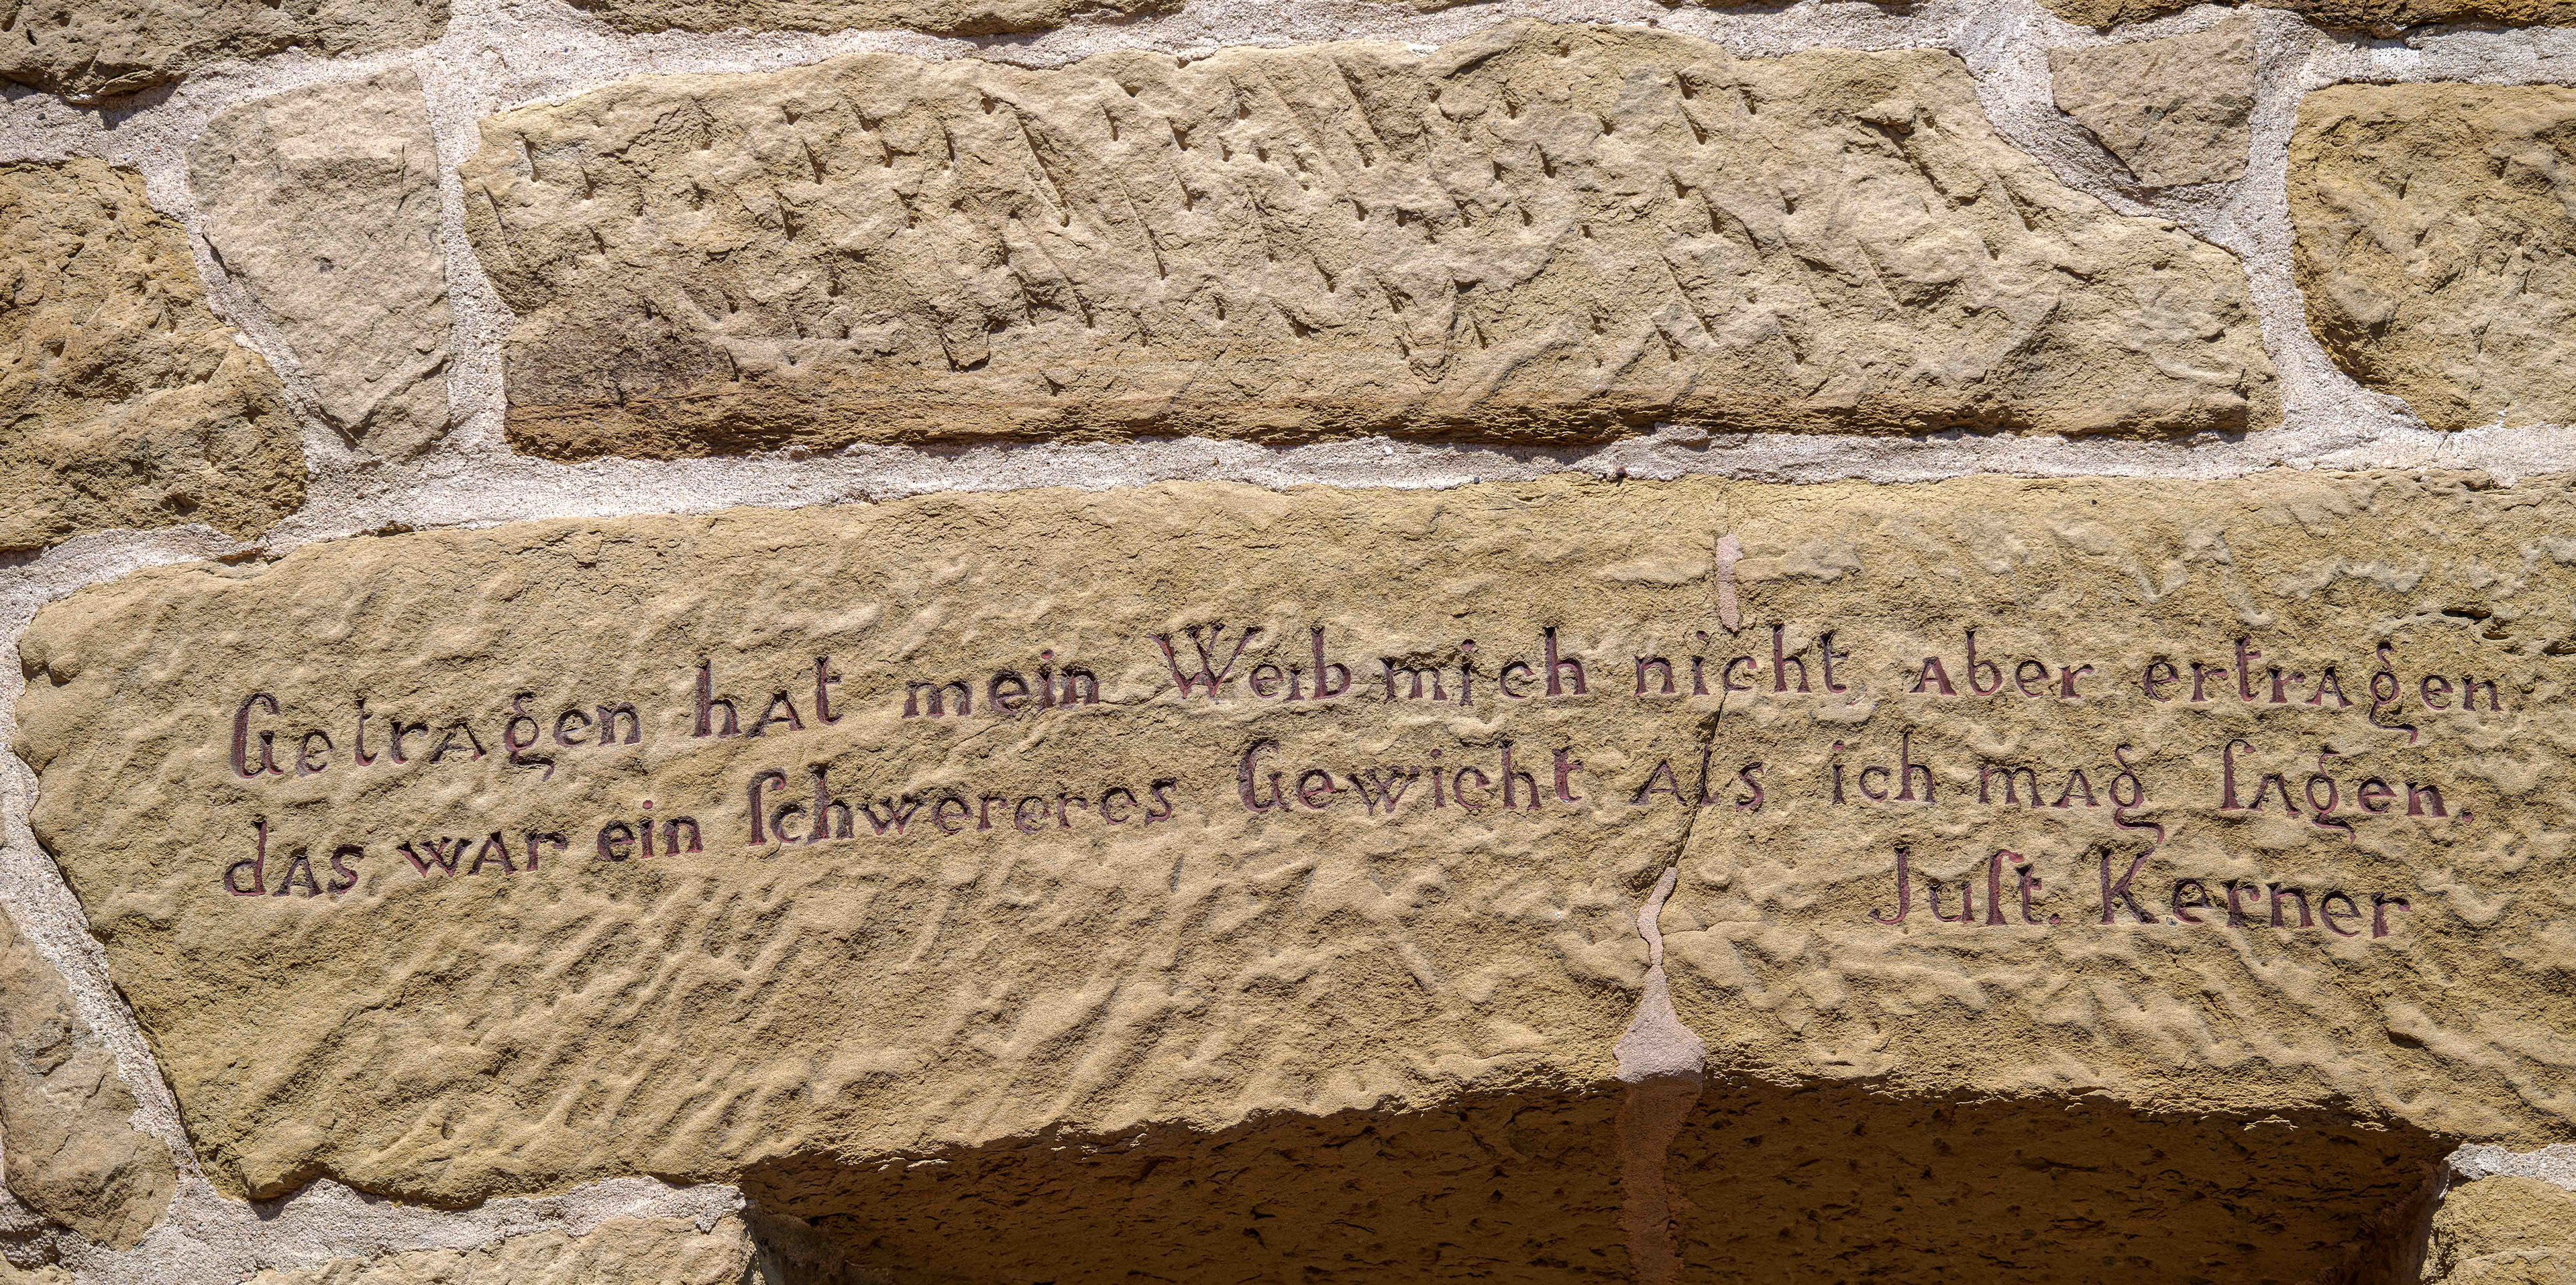 Getragen hat mein Weib mich nicht, aber ertragen
das war ein ſchwereres Gewicht als ich mag ſagen.
Juſt. Kerner